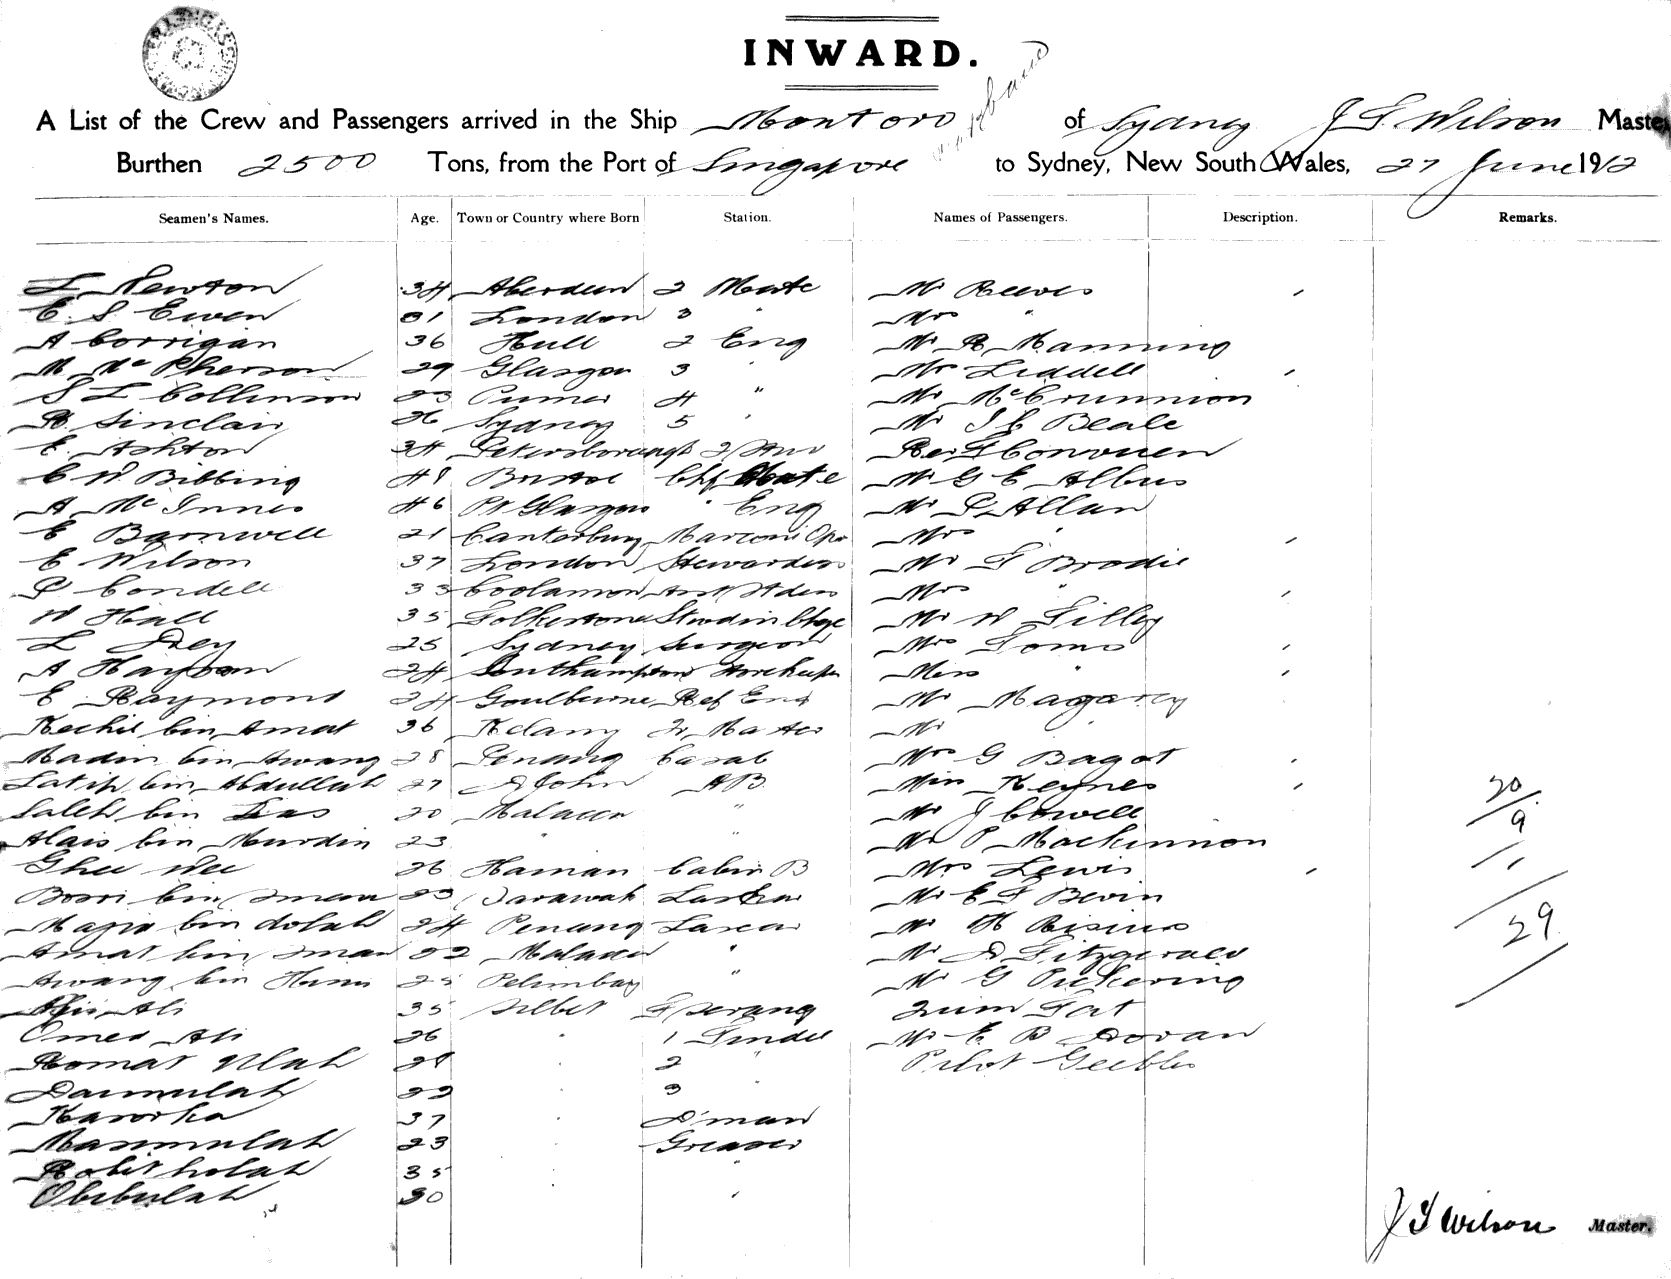 INWARD.
A List of the Crew and Passengers arrived in the Ship Montoro of Sydney J F Wilson Master
Burthen 2500 Tons, from the Port of Singapore to Sydney, New South Wales, 27 June 1912
Seamen's Names. Age. Town or Country where Born Station. Names of Passengers. Description. Remarks.
Newton 34 Aberdeen 2 Mate Mr Reeves
E. S. Ewen 31 London 3 " Mrs "
A Corrigan 36 Hull 2 Eng Mr R Manning
M McPherson 29 Glasgow 3 " Mrs Liddell
S L Collinson 23 4 " Mr McCrunnion
R Sinclair 26 Sydney 5 " Mr Beale
E. Ashton 34 Peterborough 2/
C W Bibbing 48 Bristol Chf Mate Mr G E Albus
A McInnes 46 Pt Glasgow " Eng Mr P Allan
E Barnwell 21 Canterbury Marconi Opr Mrs "
E Wilson 37 London Stewardess Mr F Brodie
P Condell 33 Coolamon Mrs "
W Hall 35 Folkestone Mr W Lilley
L Dey 25 Sydney Surgeon Mrs Toms
A 24 Southampton Storekeeper Miss "
E Raymond 24 Goulburne Ref Eng Mr Magarey
Kechil bin Amat 36 Mr
Madin bin Awang 28 Penang Casab Mrs G Bagot
Latip bin Abdullah 27 AB Miss Keynes
Saleh bin 20 Malacca " Mr J Cowell 20
Alais bin Nurdin 23 " " Mr P Mackinnon 9
Ghee Wee 26 Hainan Cabin B Mrs Lewis
bin 23 Sarawak Mr E F Bevin
bin dolah 24 Penang Lascar Mr H 29
Amat bin 22 Malacca " Mr D Fitzgerald
Awang bin " Mr G Pickering
Ali 35 Silhet Serang Fat
Omed Ali 26 " 1 Tindel Mr E B Doran
Romat Ulah 28 " 2 " Pilot
Daimulah 22 " 3 "
37 " D'man
Manmulah 23 " Greaser
35 " "
Obibulah 30 "
J F Wilson Master.